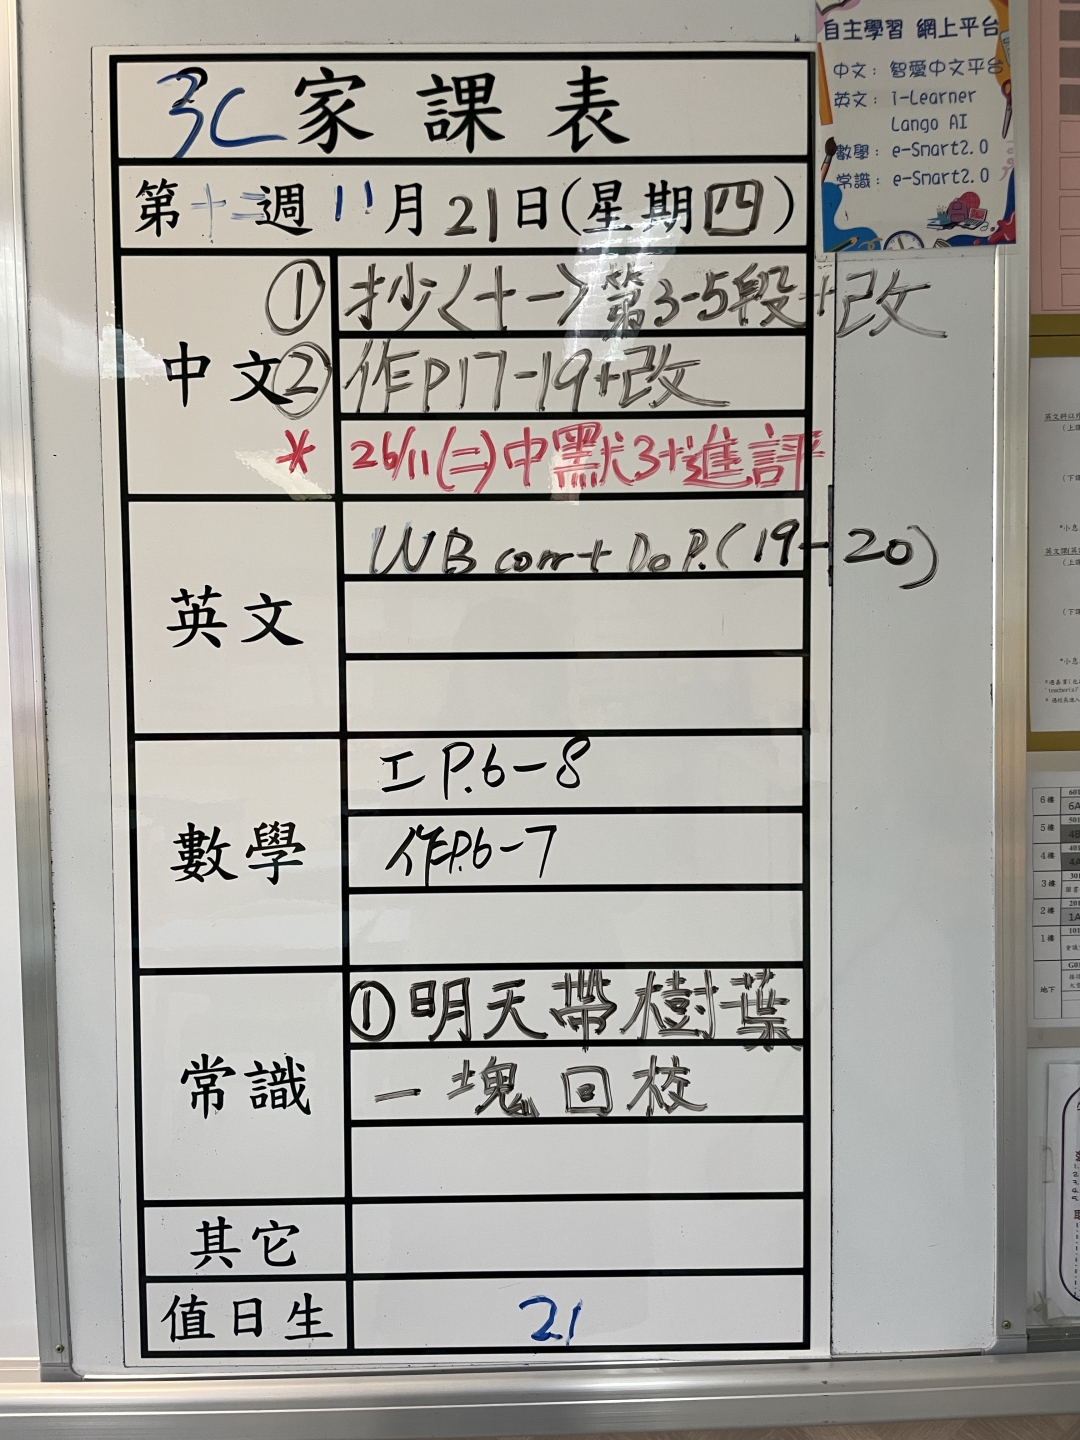 3C家課表
第十二週11月21日(星期四)
中文
①抄〈十一〉第3-5段+改
②作P17-19+改
*26/11(二)中默3+進評
英文
WB corr+DoP.(19-20)
數學
工P.6-8
作P.6-7
常識
①明天帶樹葉
一塊回校
其它
值日生
21
自主學習 網上平台
中文：智愛中文平台
英文：i-Learner
Lango AI
數學：e-Smart2.0
常識：e-Smart2.0
6樓
6A
5樓
4樓
3樓
2樓
1A
1樓
地下